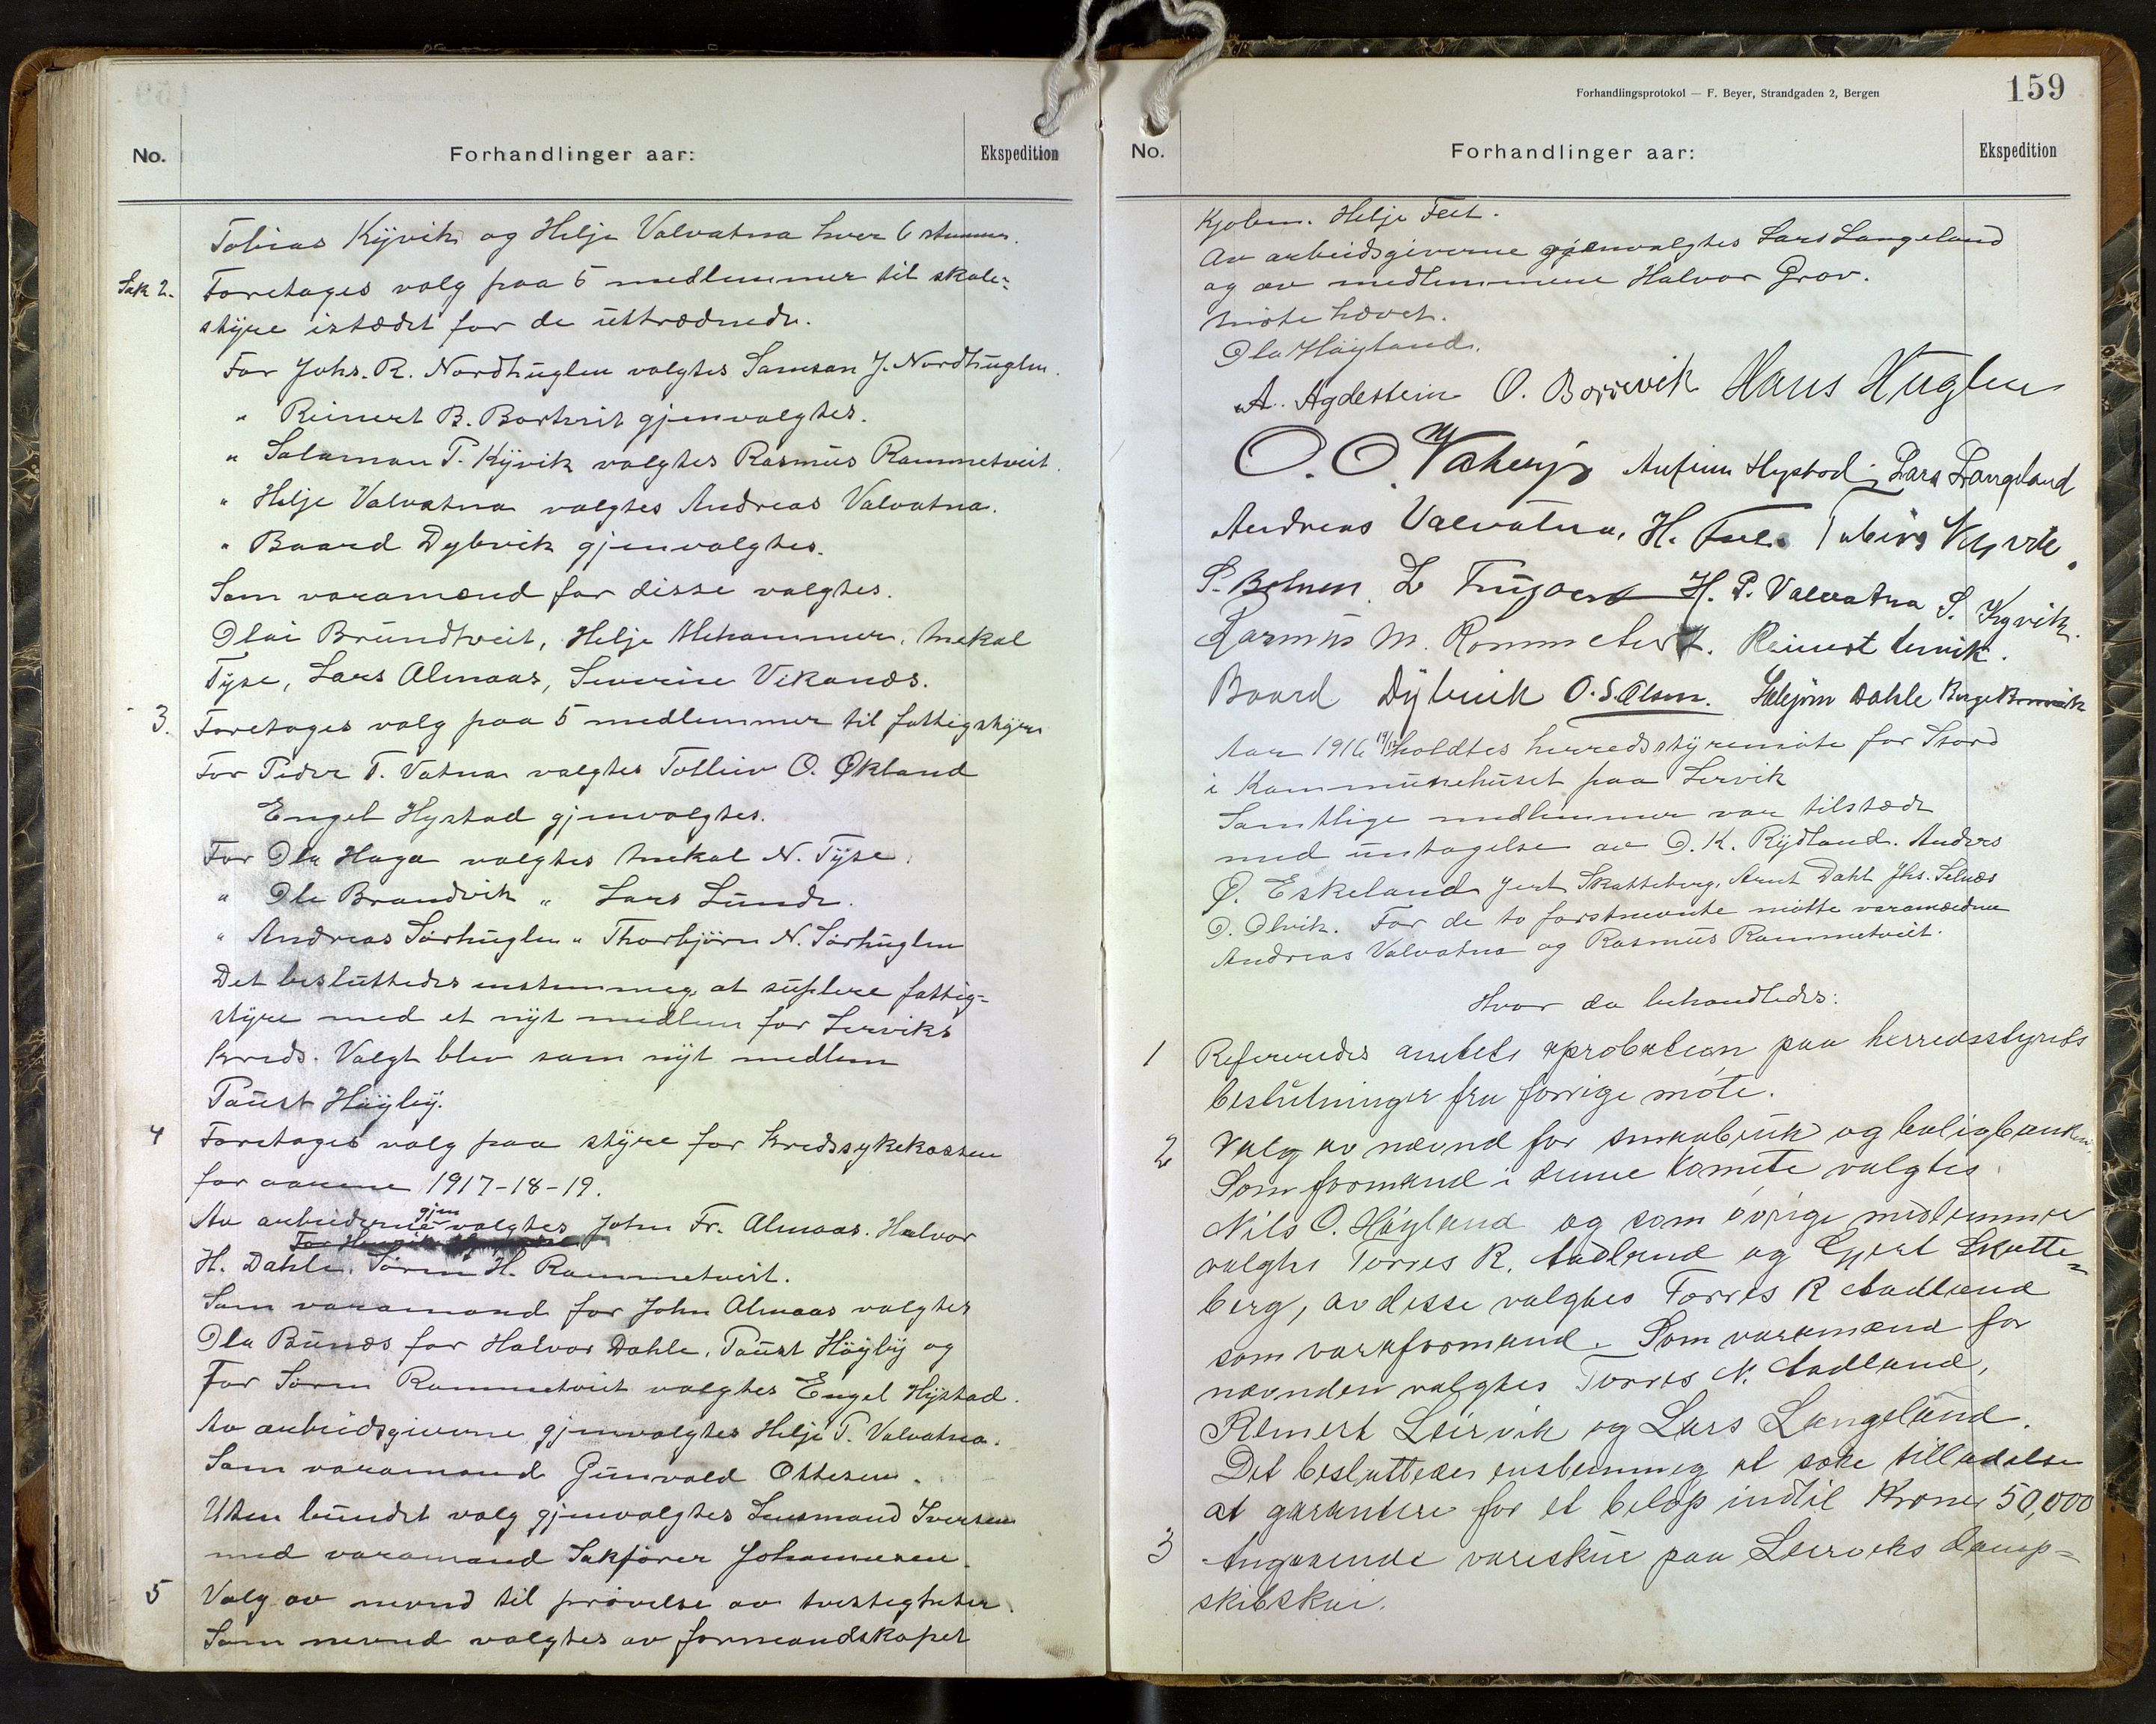 No.
Forhandlinger aar:
Ekspedition
Tobias Kyvik og Helje Valvatna hver 6 stemmer.
Sak 2. Foretages valg paa 5 medlemmer til skole-
styre istædet for de uttrædnede.
For Johs. R. Nordhuglen valgtes Samson J. Nordhuglen.
" Reinert B. Bortveit gjenvalgtes.
" Salamon T. Kyvik valgtes Rasmus Rommetveit.
" Helje Valvatna valgtes Andreas Valvatna.
" Baard Dybvik gjenvalgtes.
Som varamænd for disse valgtes.
Olai Brundtveit, Helje Mehammer, Mekal
Tyse, Lars Almaas, Severin Vikanes.
3. Foretages valg paa 5 medlemmer til fattigstyre
For Peder T. Vatna valgtes Tolleiv O. Økland
Engel Hystad gjenvalgtes.
For Ola Haga valgtes Mekal N. Tyse.
" Ole Brandvik " Lars Lunde.
" Andreas Sørhuglen " Thorbjørn N. Sørhuglen
Det besluttedes enstemmeg at suplere fattig-
styre med et nyt medlem for Lerviks
kreds. Valgt blev som nyt medlem
Paust Høyby.
4 Foretages valg paa styre for kredssykekassen
for aarene 1917-18-19.
Av arbeiderne gjenvalgtes John Fr. Almaas. Halvor
H. Dahle. Søren H. Rommetveit.
Som varamænd for John Almaas valgtes
Ola Bunæs for Halvor Dahle, Paust Høyby og
For Søren Rommetveit valgtes Engel Hystad.
Av arbeidsgiverne gjenvalgtes Helje P. Valvatna.
Som varamand Gunvald Ottesen.
Uten bundet valg gjenvalgtes Lensmand Iversen
med varamand Sakfører Johannesen.
5 Valg av nevnd til prøvelse av tvistigheter.
Som nevnd valgtes av formandskapet
Forhandlingsprotokol — F. Beyer, Strandgaden 2, Bergen
159
No.
Forhandlinger aar:
Ekspedition
Kjøben. Helje Feet.
Av arbeidsgiverne gjenvalgtes Lars Langeland
og av medlemmene Halvor Grov.
Møte hævet.
Ola Høyland.
A. Agdestein O. Borrevik Hans Huglen
O. O. Anfinn Hystad. Lars Langeland
Andreas Valvatna, H. Tobias Kyvik.
S. L H. P. Valvatna S. Kyvik.
Rasmus M. Rommetveit. Reinert Lervik.
Baard Dybvik O. S. Olsen. Dahle
Aar 1916 19/12 holdtes herredsstyremøte for Stord
i Kommunehuset paa Lervik
Samtlige medlemmer var tilstæde
med untagelse av O. K. Rydland. Anders
O. Eskeland Jert Skatteberg, Arnt Dahl Jhs. Selnæs
O. Olvik. For de to førstnevnte møtte varamædnene
Andreas Valvatna og Rasmus Rommetveit.
Hvor da behandledes:
1 Refereredes amtets aprobation paa herredsstyrets
beslutninger fra forrige møte.
2 Valg av nævnd for smaabruk og boligbanken.
Som formand i denne komite valgtes
Nils O. Høyland og som øvrige medlemmer
valgtes Torres R. Aadland og Gjert Skatte-
berg, av disse valgtes Torres R Aadland
som varaformand. Som varamænd for
nævnden valgtes Torres N. Aadland,
Reinert Leirvik og Lars Langeland.
Det besluttedes enstemmeg at søke tilladelse
at garantere for et beløp indtil Kroner 50,000
3 Angaaende vareskur paa Leirviks damp-
skibskai.